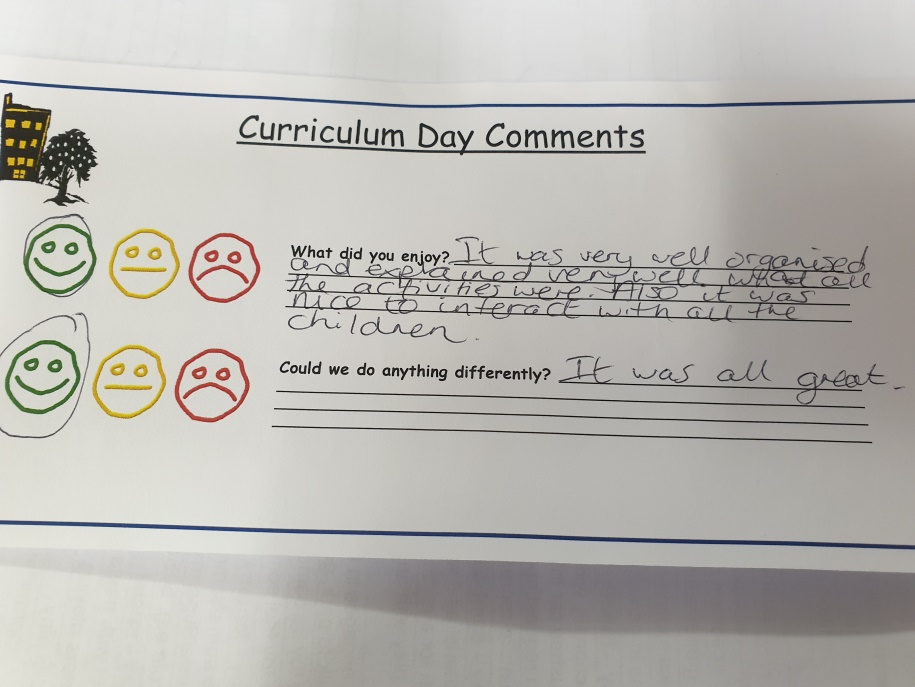 Curriculum Day Comments
What did you enjoy? It was very well organised
and explained very well what all
the activities were. Also it was
nice to interact with all the
children.
Could we do anything differently? It was all great.